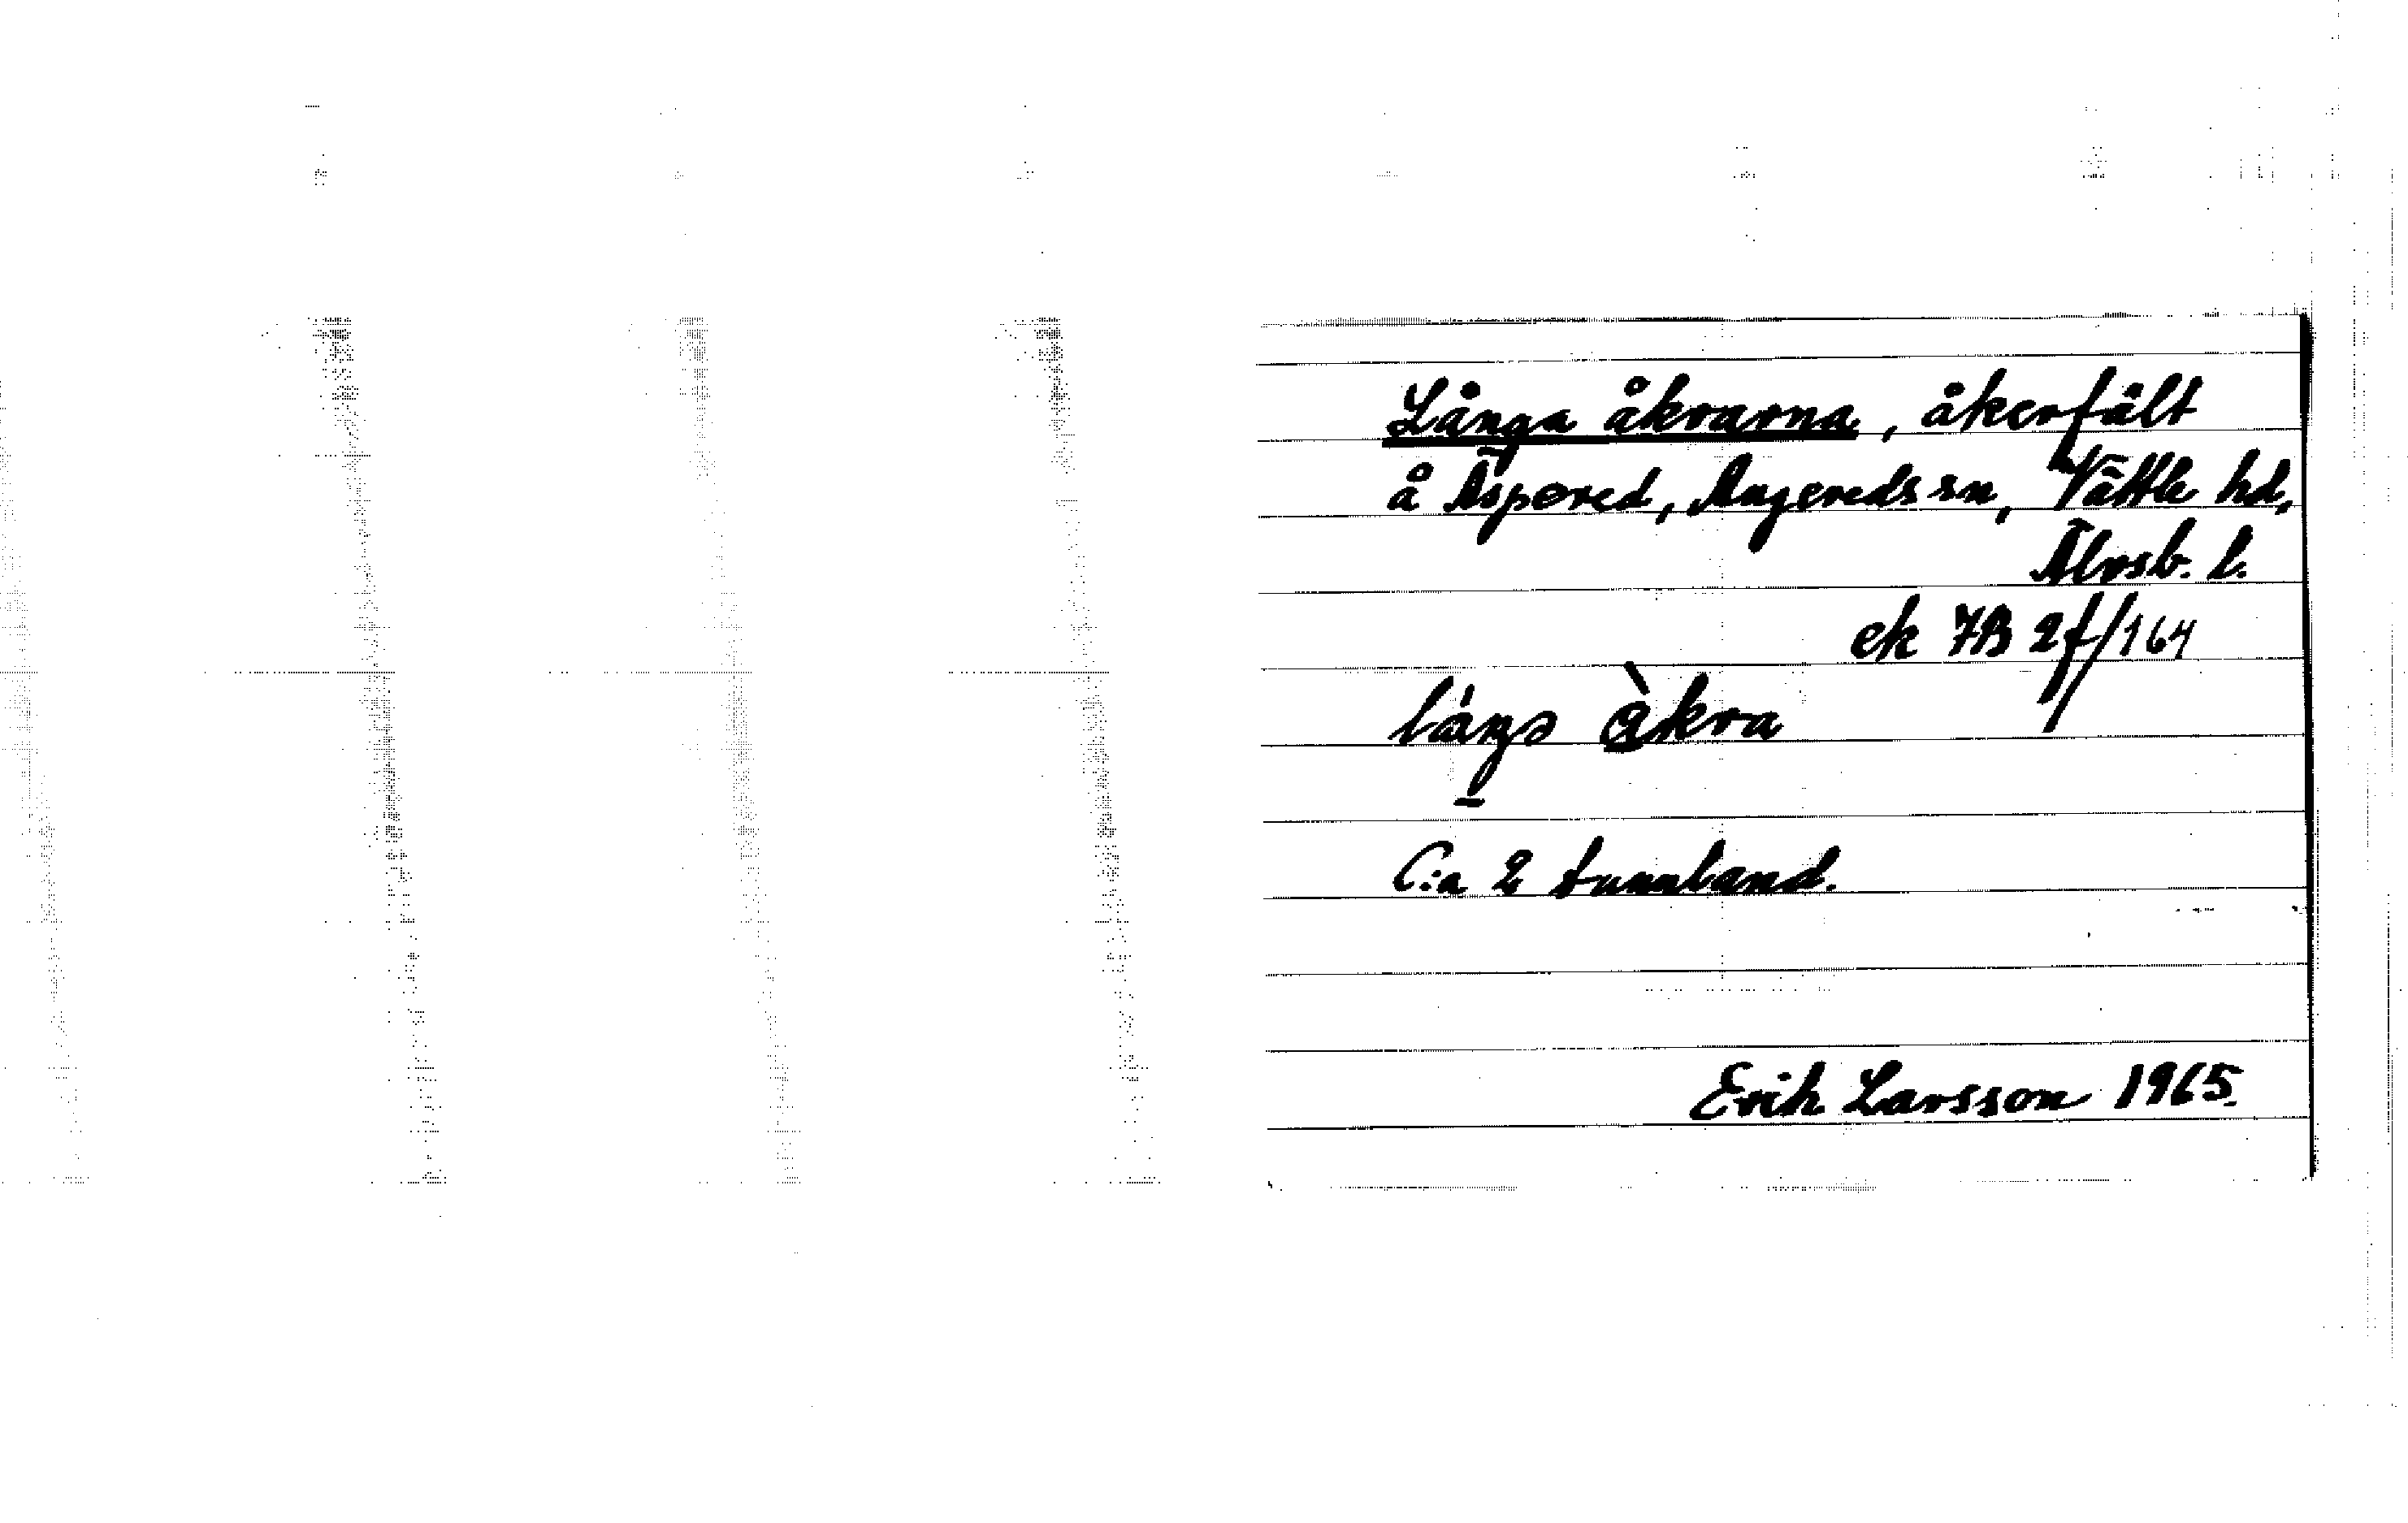 Långa åkrarna, åkerfält
å Äspered, Angereds sn, Vättle hd,
Älvsb. l.
ek 7B 2f/164
C:a 2 tunnland.
Erik Larsson 1965.